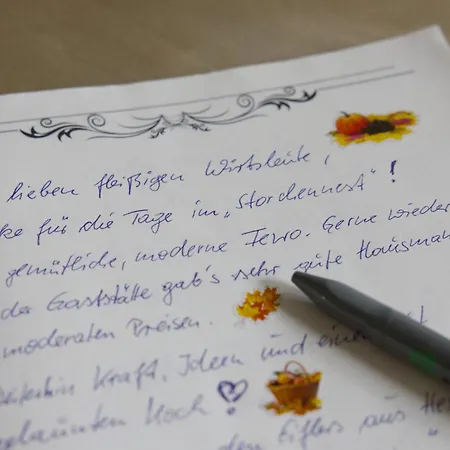 lieben fleißigen Wirtsleute,
ke für die Tage im „Storchennest"!
gemütliche, moderne Fewo. Gerne wieder
der Gaststätte gab's sehr gute Hausman
moderaten Preisen.
Weiterhin Kraft, Ideen und einen
gelaunten Koch!
den Eiflers aus